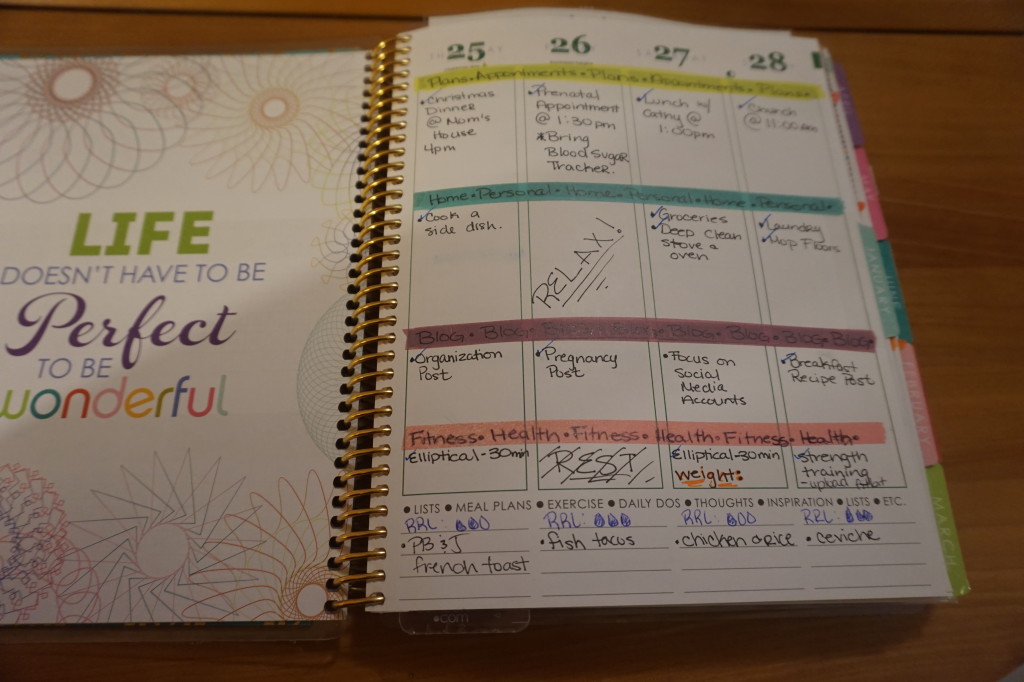 LIFE
DOESN'T HAVE TO BE
Perfect
TO BE
wonderful
25 26 27 28
Plans • Appointments • Plans • Appointments • Plans •
• Christmas
Dinner
@ Mom's
House
4pm
• Prenatal
Appointment
@ 1:30pm
*Bring
Blood Sugar
Tracker.
• Lunch w/
Cathy @
1:00pm
• Church
@ 11:00am
Home • Personal • Home • Personal • Home • Personal •
• Cook a
side dish.
RELAX!
• Groceries
• Deep Clean
stove &
oven
• Laundry
• Mop Floors
Blog • Blog • Blog • Blog • Blog • Blog
• Organization
Post
• Pregnancy
Post
• Focus on
Social
Media
Accounts
• Breakfast
Recipe Post
Fitness • Health • Fitness • Health • Fitness • Health •
• Elliptical - 30min
REST
• Elliptical - 30min
weight:
• strength
training
- upload
• LISTS • MEAL PLANS • EXERCISE • DAILY DOS • THOUGHTS • INSPIRATION • LISTS • ETC.
RRL: RRL: RRL: RRL:
• PB & J
french toast
• fish tacos
• chicken & rice
• ceviche
JANUARY
FEBRUARY
MARCH
.com